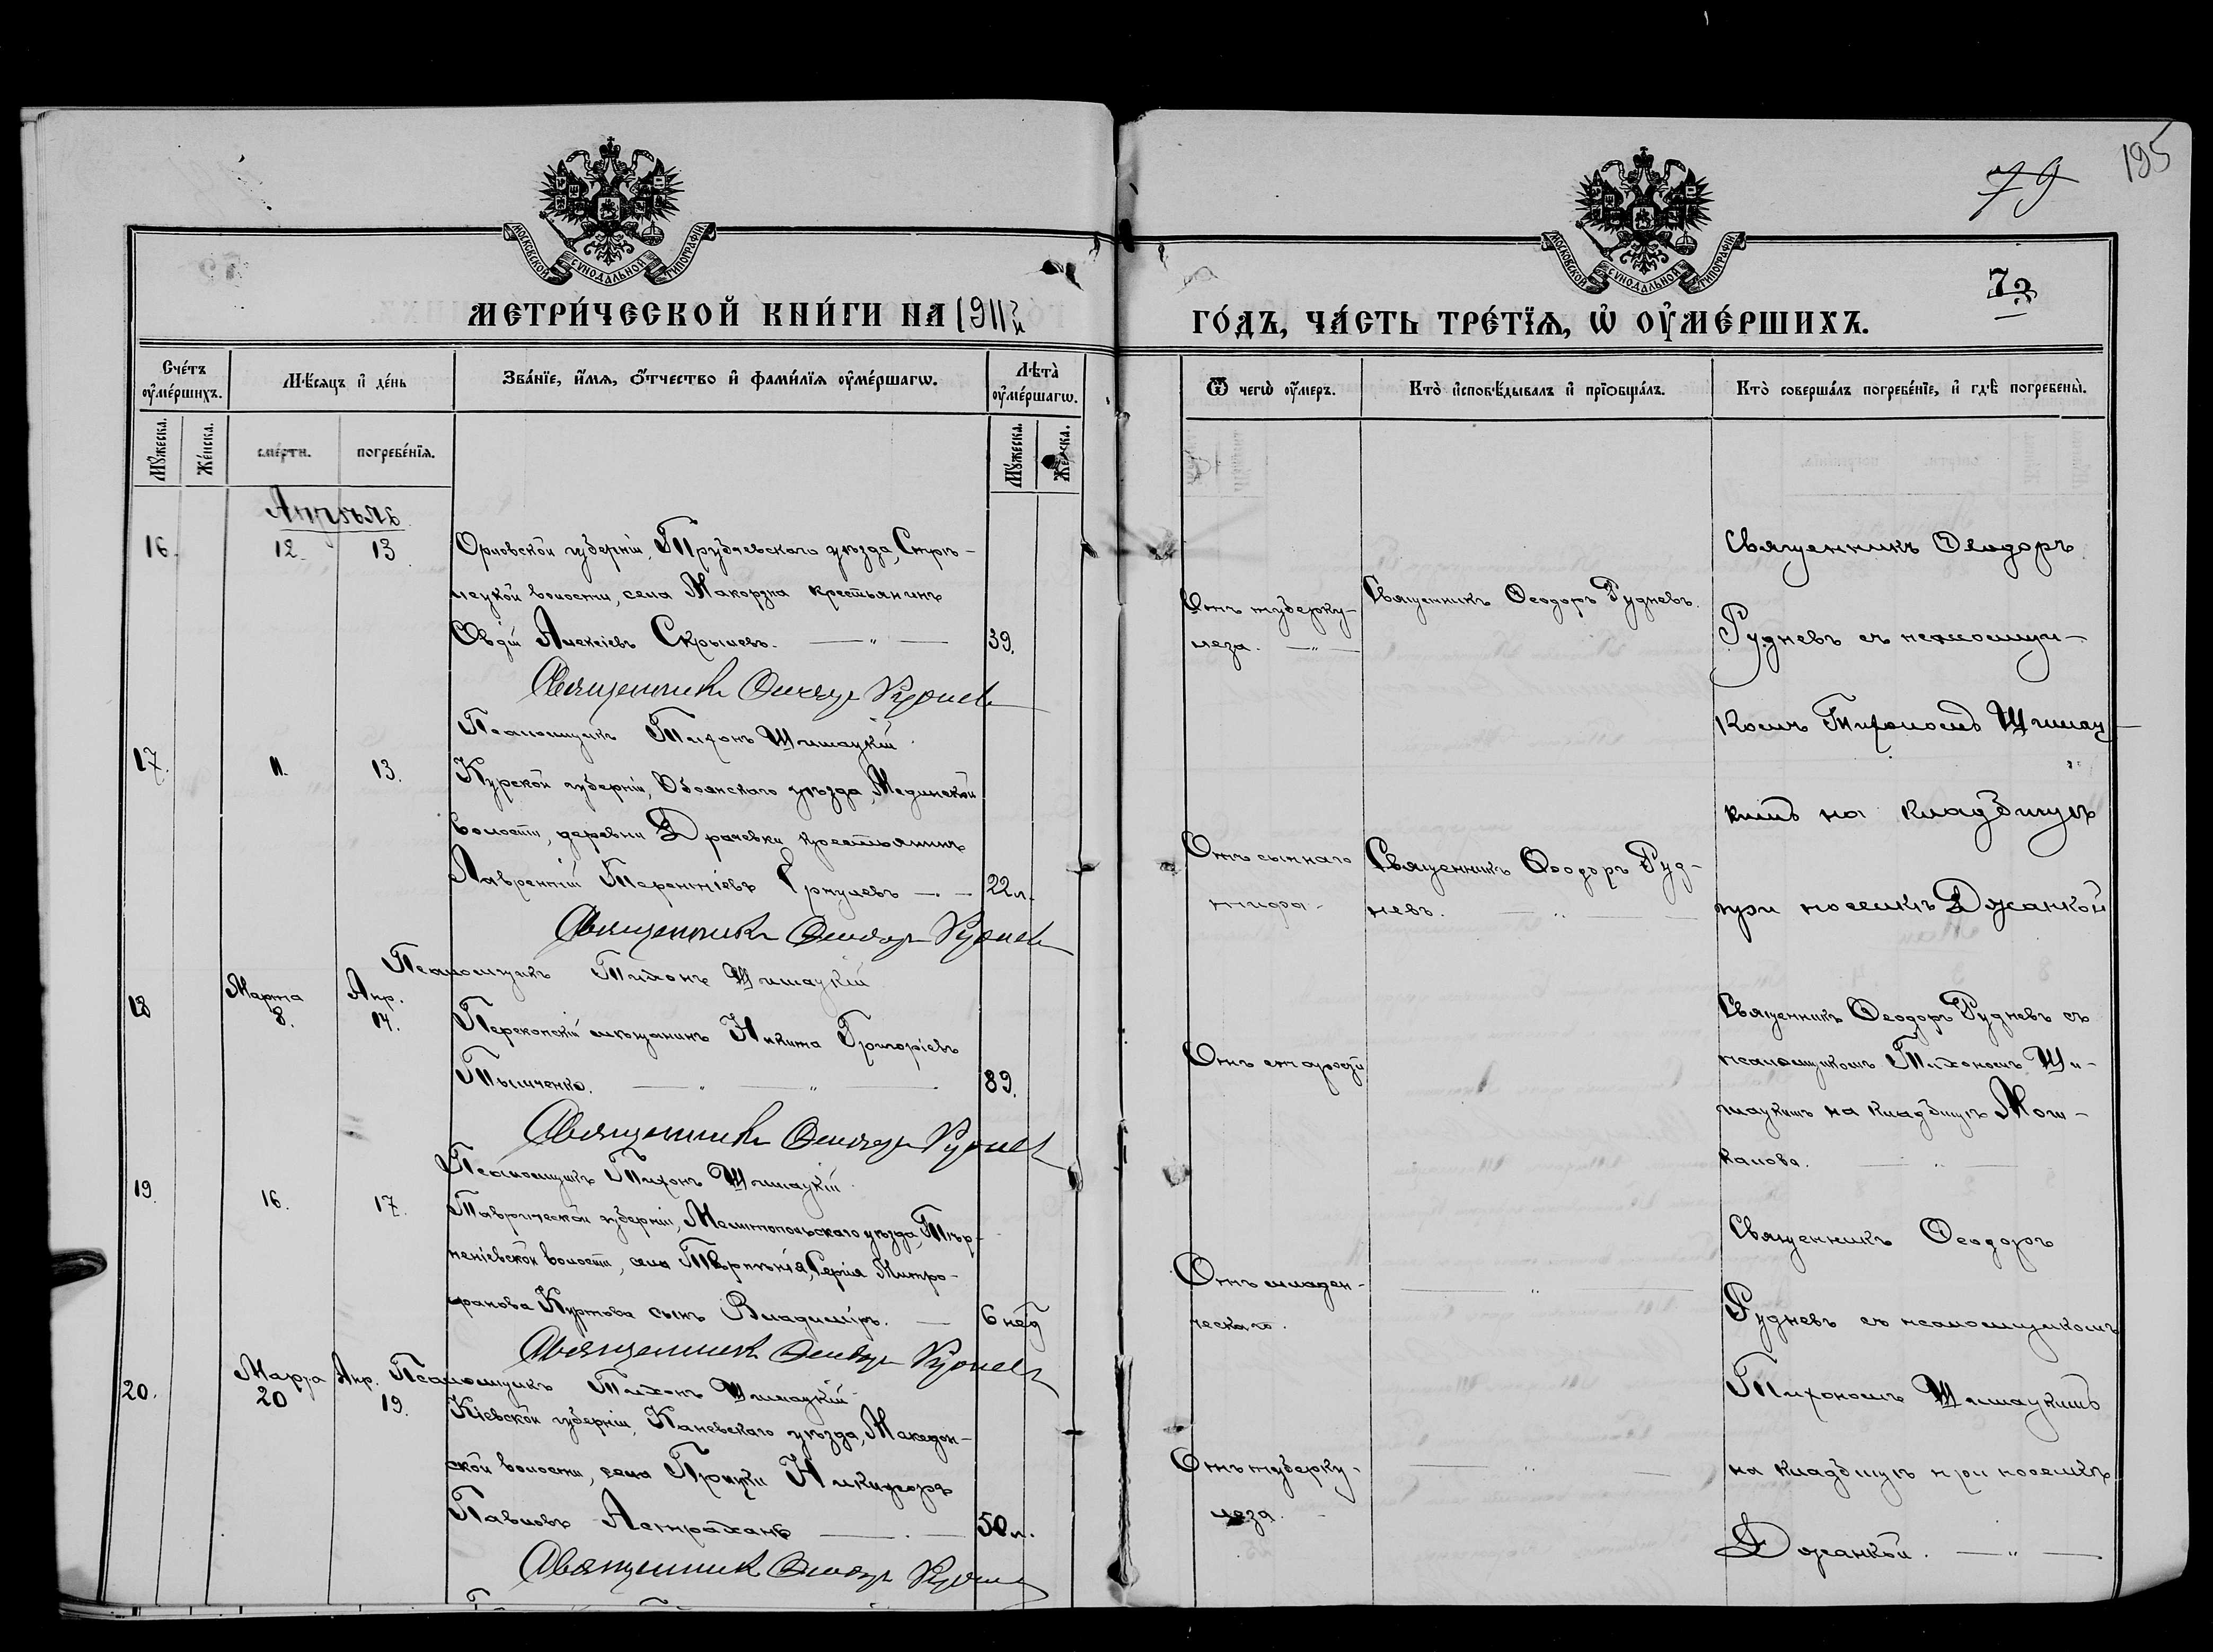 195
79
73
МОСКОВСКОЙ СѴНОДАЛЬНОЙ ТИПОГРАФІИ
МОСКОВСКОЙ СѴНОДАЛЬНОЙ ТИПОГРАФІИ
МЕТРИ́ЧЕСКОЙ КНИ́ГИ НА 1911й
ГО́ДЪ, ЧА́СТЬ ТРЕ́ТЇѦ, Ѽ ОУ҆МЕ́РШИХЪ.
Сче́тъ оу҆ме́ршихъ.
Мѣ́сяцъ и҆ де́нь
Зва́нїе, и҆́мѧ, ѻ҆́тчество и҆ фами́лїѧ оу҆ме́ршагѡ.
Лѣ́та оу҆ме́ршагѡ.
Ѿ чегѡ̀ оу҆́меръ.
Кто̀ и҆сповѣ́дывалъ и҆ прїѻбща́лъ.
Кто̀ соверша́лъ погребе́нїе, и҆ гдѣ̀ погребены̀.
Мꙋ́жеска.
Же́нска.
сме́рти.
погребе́нїѧ.
Мꙋ́жеска.
Же́нска.
Апрѣль
16. 12. 13.
Орловской губерніи, Трубчевскаго уѣзда, Стрѣ-
лецкой волости, села Макорзна крестьянинъ
Овдій Алексіевъ Скрылевъ. — " — 39.
Священникъ Ѳеодоръ Рудневъ
Псаломщикъ Тихонъ Шимацкій.
Отъ туберку-
леза. — " —
Священникъ Ѳеодоръ Рудневъ.
Священникъ Ѳеодоръ
Рудневъ съ псаломщи-
комъ Тихономъ Шимац-
кимъ на кладбищѣ
при поселкѣ Джанкой
17. 11. 13.
Курской губерніи, Обоянскаго уѣзда, Мединской
волости, деревни Драчевки крестьянинъ
Лаврентій Терентіевъ — 22 л.
Священникъ Ѳеодоръ Рудневъ
Псаломщикъ Тихонъ Шимацкій
Отъ сыпнаго
тифа.
Священникъ Ѳеодоръ Руд-
невъ. — " —
18 Марта 8. Апр. 14.
Перекопскій мѣщанинъ Никита Григоріевъ
Тымченко. — " — " — 89.
Священникъ Ѳеодоръ Рудневъ
Псаломщикъ Тихонъ Шимацкій
Отъ старости
Священникъ Ѳеодоръ Рудневъ съ
псаломщикомъ Тихономъ Ши-
мацкимъ на кладбищѣ Мош-
калова. — " —
19. 16. 17.
Таврической губерніи, Мелитопольскаго уѣзда, Тѣр-
пеніевской волости, села Тѣрпѣнія, Сергія Митро-
фанова Куртова сынъ Владиміръ. — 6 нед
Священникъ Ѳеодоръ Рудневъ
Псаломщикъ Тихонъ Шимацкій
Отъ младен-
ческаго.
— " —
Священникъ Ѳеодоръ
Рудневъ съ псаломщикомъ
Тихономъ Шимацкимъ
на кладбищѣ при поселкѣ
Джанкой. — " —
20. Марта 20 Апр. 19.
Кіевской губерніи, Каневскаго уѣзда, Македон-
ской волости, села Никифоръ
Павловъ Астраханъ — 50 л.
Священникъ Ѳеодоръ Рудневъ
Отъ туберку-
леза.
— " —